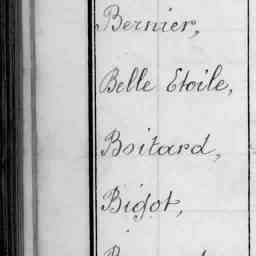 Bernier,
Belle Etoile,
Boitard,
Bigot,